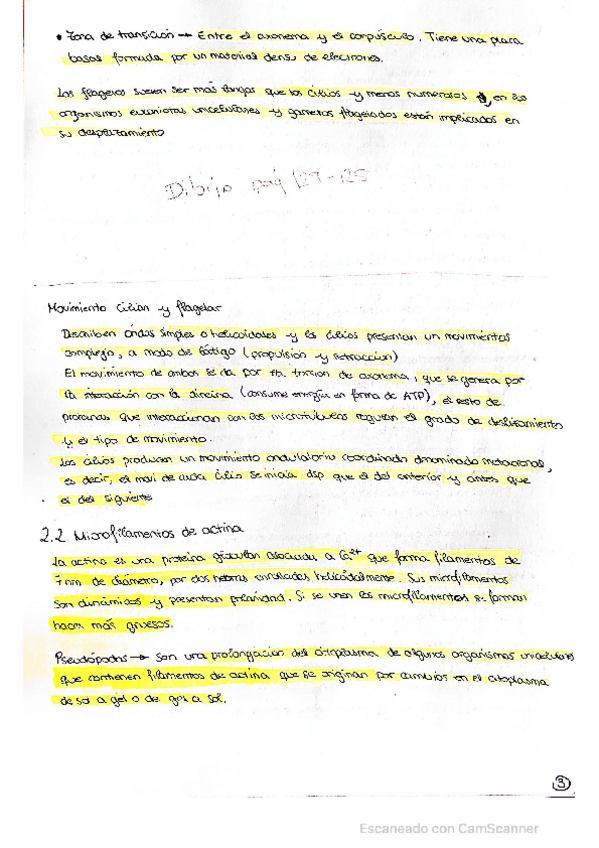 • Zona de transición → Entre el axonema y el corpúsculo. Tiene una placa
basal formada por un material denso de electrones.
Los flagelos suelen ser más largos que los cilios y menos numerosos y en los
organismos eucariotas unicelulares y gametos flagelados están implicados en
su desplazamiento
Dibujo pág 129-125
Movimiento ciliar y flagelar
Describen ondas simples o helicoidales y los cilios presentan un movimientos
complejo, a modo de látigo (propulsión y retracción)
El movimiento de ambos se da por tb. torsion de axonema, que se genera por
la interacción con la dineína (consume energía en forma de ATP), el resto de
proteínas que interaccionan con los microtúbulos regulan el grado de deslizamiento
y el tipo de movimiento.
Los cilios producen un movimiento ondulatorio coordinado denominado metacronal,
es decir, el movi de cada cilio se inicia dsp que el del anterior y antes que
el del siguiente
2.2 Microfilamentos de actina
La actina es una proteína globular asociada a Ca²⁺ que forma filamentos de
7 nm de diámetro, por dos hebras enrolladas helicoidalmente. Sus microfilamentos
son dinámicos y presentan polaridad. Si se unen los microfilamentos se forman
haces más gruesos.
Pseudópodos → son una prolongación del citoplasma de algunos organismos unicelulares
que contienen filamentos de actina que se originan por cambios en el citoplasma
de sol a gel o de gel a sol.
3
Escaneado con CamScanner